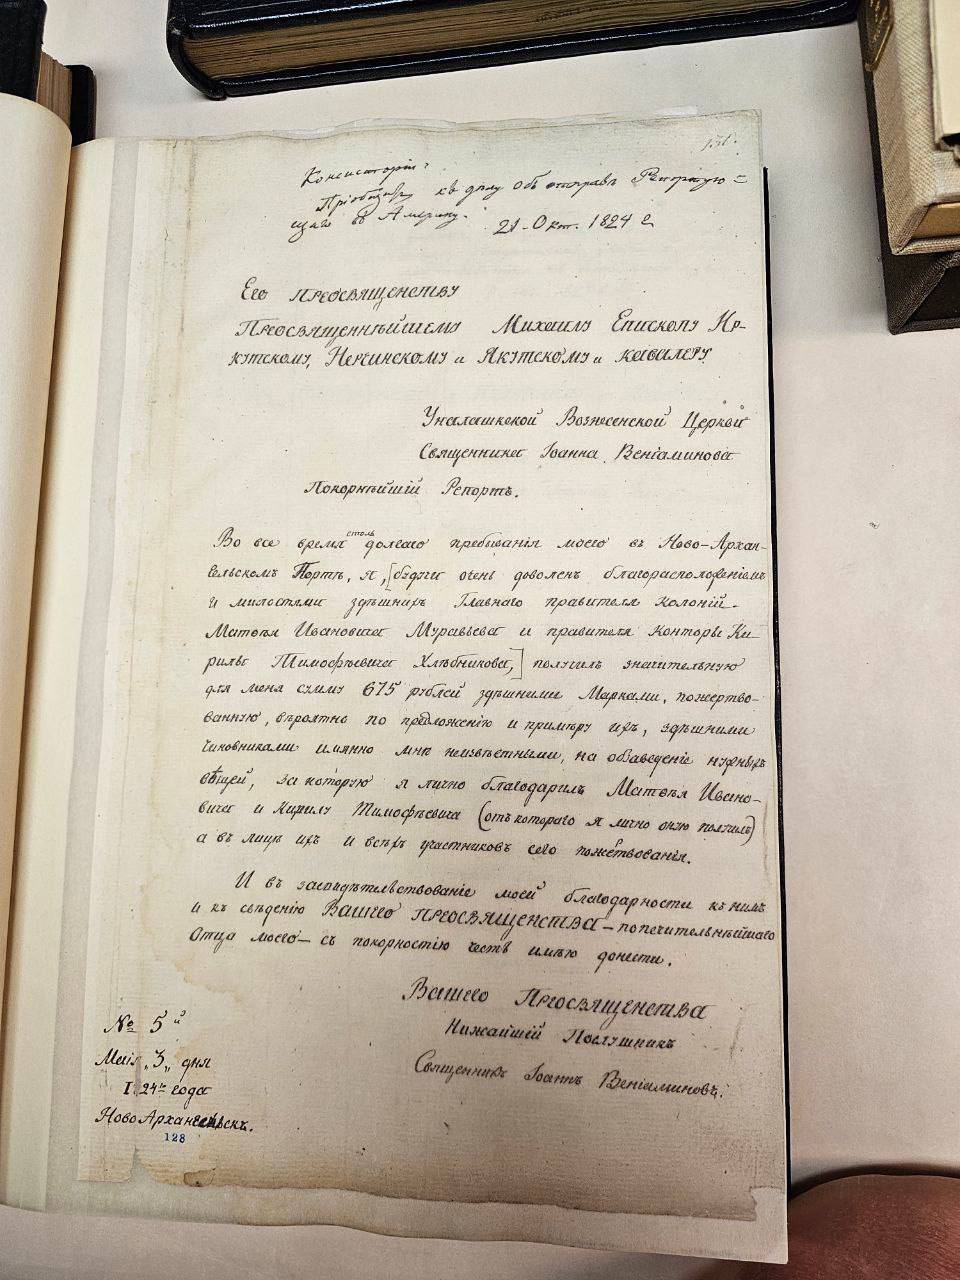 131.
Консисторiи
Прiобщить къ дѣлу объ отправѣ
въ Америку. 21 Окт. 1824 г
Его Преосвященству
Преосвященнѣйшему Михаилу Епископу Ир-
кутскому, Нерчинскому и Якутскому и кавалеру
Уналашкской Вознесенской Церкви
Священника Iоанна Венiаминова
Покорнѣйшiй Репортъ.
Во все время столь долгаго пребыванiя моего въ Ново-Архан-
гельскомъ Портѣ, я, [будучи очень доволенъ благорасположенiемъ
и милостями здѣшнихъ Главнаго правителя Колонiй
Матвѣя Ивановича Муравьева и правителя конторы Ки-
рилы Тимофѣевича Хлѣбникова,] получилъ значительную
для меня сумму 675 рублей здѣшними Марками, пожертво-
ванную, вѣроятно по предложенiю и примѣру ихъ, здѣшними
чиновниками имянно мнѣ неизвѣстными, на обзаведенiе нужныхъ
вѣщей, за которую я лично благодарилъ Матвѣя Ивано-
вича и Кирилу Тимофѣевича (отъ котораго я лично оную получилъ)
а въ лицѣ ихъ и всѣхъ участниковъ сего пожертвованiя.
И въ засвидѣтельствованiе моей благодарности къ нимъ
и къ свѣденiю Вашего Преосвященства – попечительнѣйшаго
Отца моего – съ покорностiю честь имѣю донести.
Вашего Преосвященства
Нижайшiй Послушникъ
Священникъ Iоаннъ Венiаминовъ.
№ 5й
Маiя „3„ дня
1824го года
Ново Архангельскъ.
128